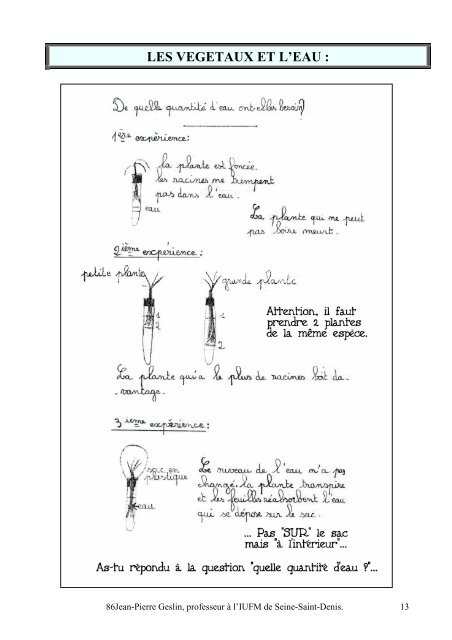 LES VEGETAUX ET L'EAU :
De quelle quantité d'eau ont-elles besoin?
1ère expérience:
la plante est foncée.
les racines ne trempent
pas dans l'eau.
eau
La plante qui ne peut
pas boire meurt.
2ième expérience:
petite plante
grande plante
1
2
1
2
Attention, il faut
prendre 2 plantes
de la même espèce.
La plante qui a le plus de racines boit da-
-vantage.
3ieme expérience:
sac en
plastique
eau
Le niveau de l'eau n'a pas
changé. la plante transpire
et les feuilles réabsorbent l'eau
qui se dépose sur le sac.
... Pas "SUR" le sac
mais "à l'intérieur"...
As-tu répondu à la question "quelle quantité d'eau ?"...
86Jean-Pierre Geslin, professeur à l'IUFM de Seine-Saint-Denis. 13